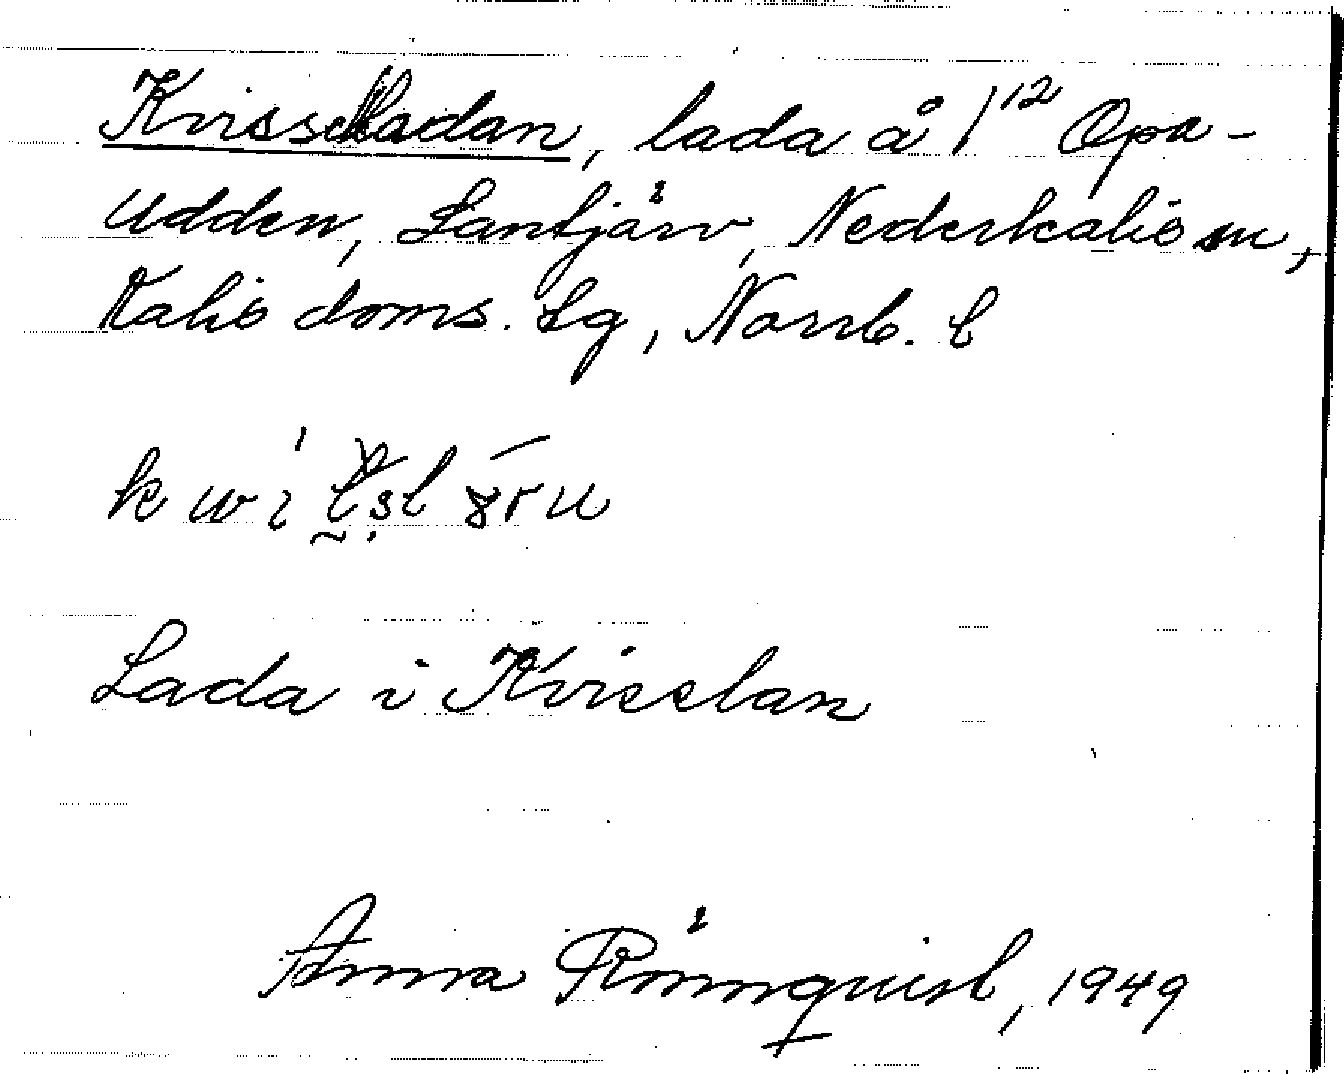 Kvisselladan, lada å 1¹² Opa-
udden, Lantjärv, Nederkalix sn,
Kalix doms. lg, Norrb. l
Lada i Kvisslan
Anna Rönnquist, 1949